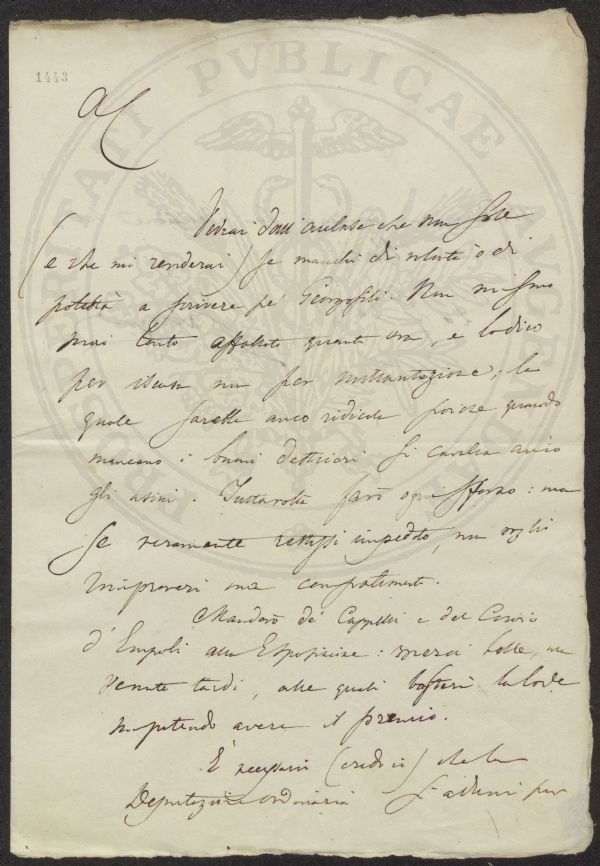 1443
AC
Vedrai dall'acclusa che
(e che mi renderai) se manchi di volontà o di
potestà a scrivere pe' Georgofili. Non mi sono
mai tanto affollato quanto ora, e lo dico
per iscusa non per millantazione; la
quale sarebbe anco ridicola poiché quando
mancano i buoni destrieri si cavalca anco
gli asini. Tuttavolta farò ogni sforzo: ma
se veramente restassi impedito, non voglio
rimproveri ma compatimenti.
Manderò de' Cappelli e del
d'Empoli alla Esposizione: belle, ma
venute tardi, alle quali basterà la lode
non potendo avere il premio.
È necessario (credo io) che la
Deputazione ordinaria si aduni per
PROSPERITATI PVBLICAE AVGENDAE